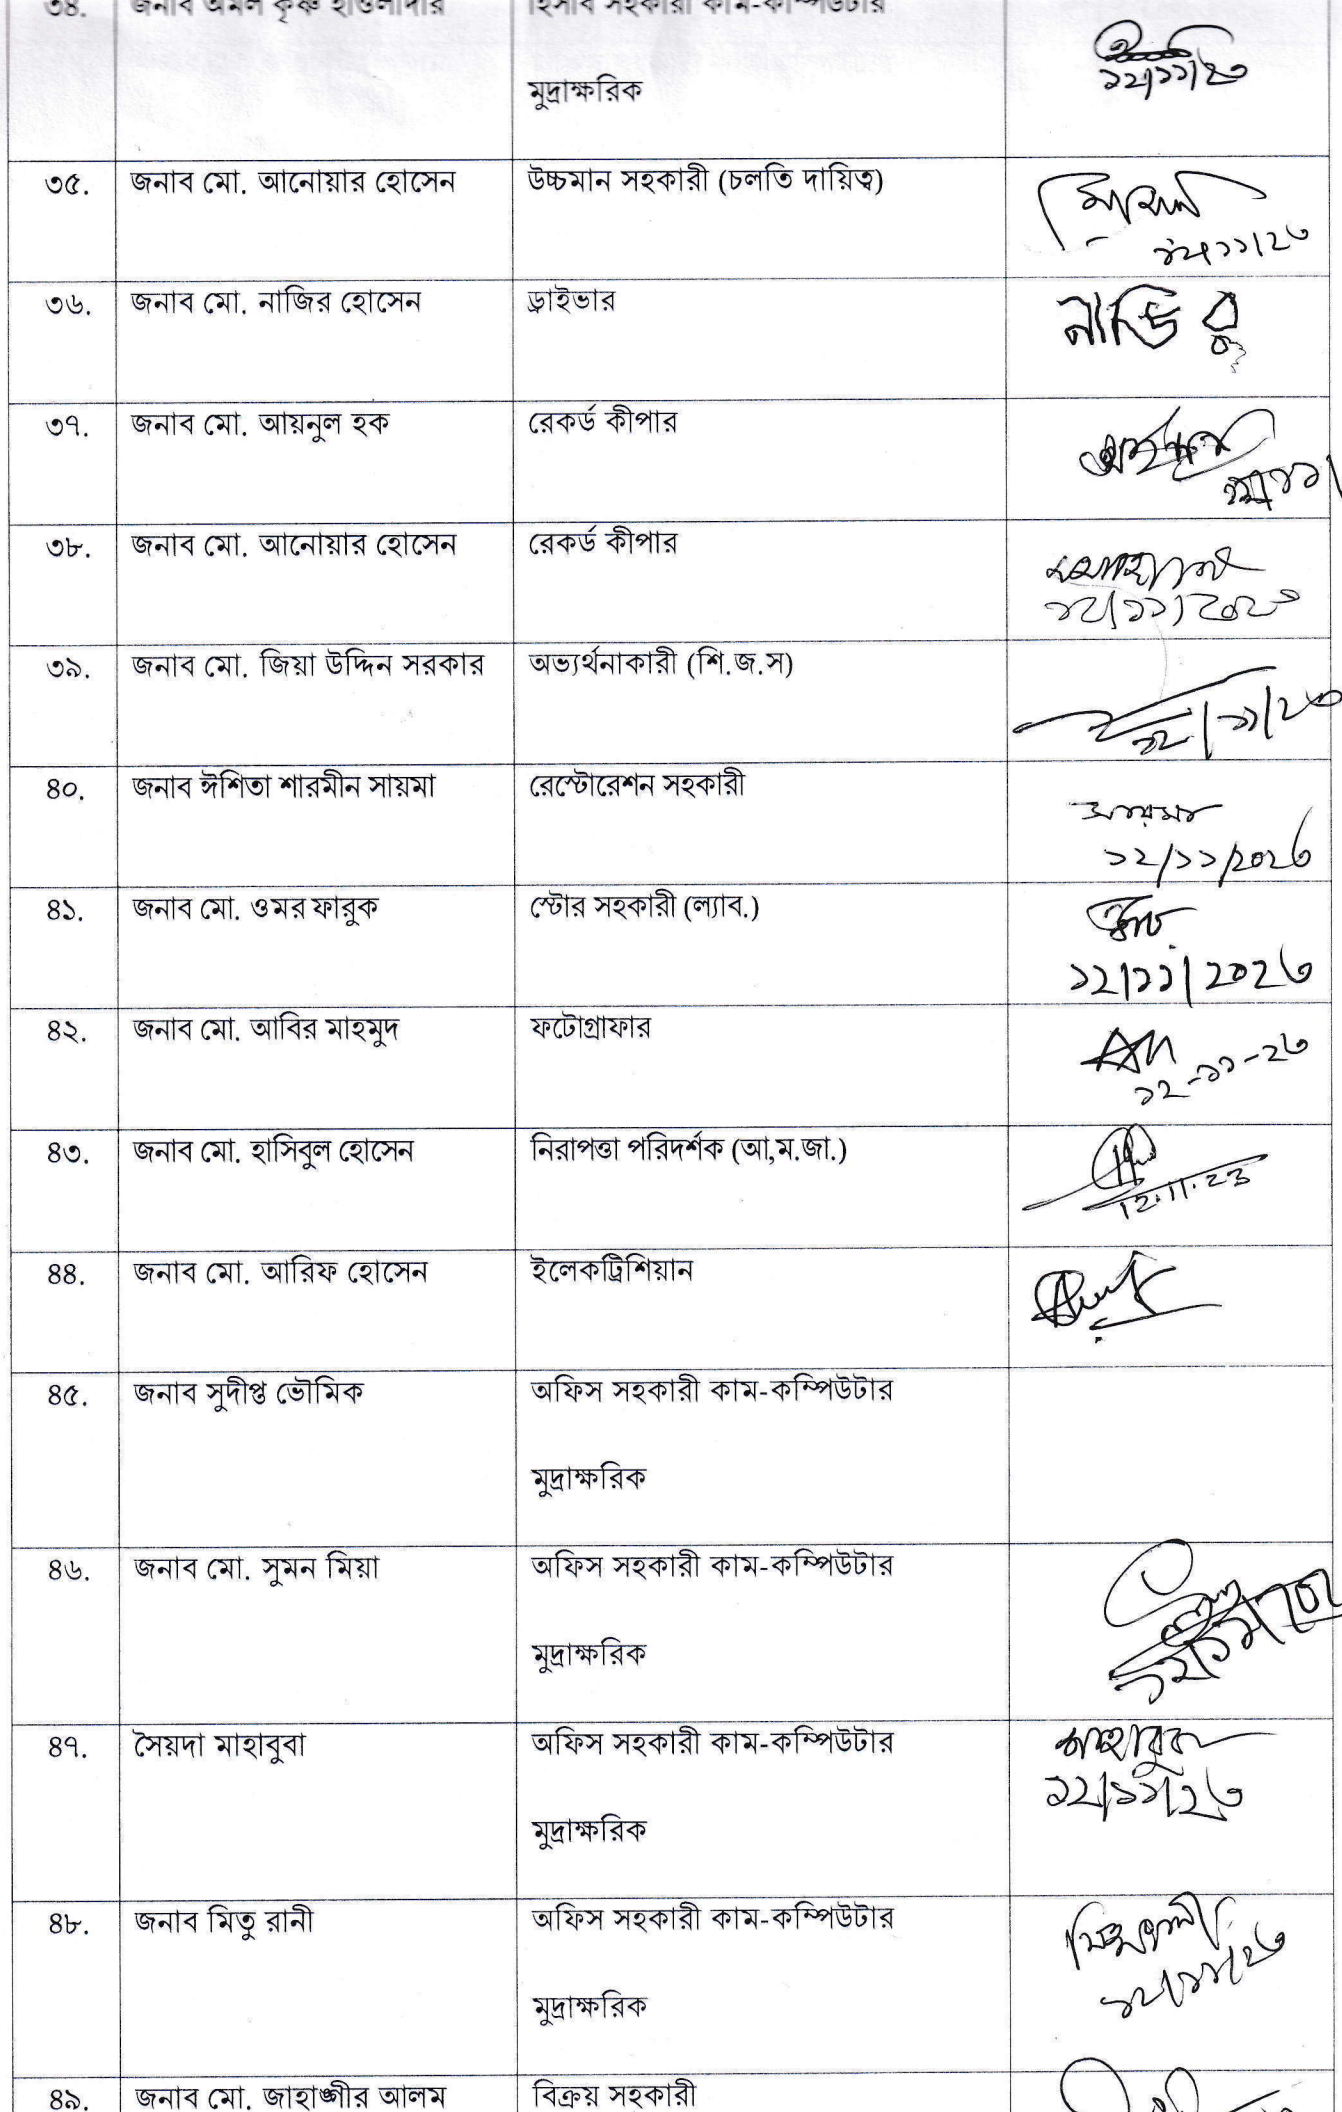 ৩৪. জনাব অমল কৃষ্ণ হাওলাদার হিসাব সহকারী কাম-কম্পিউটার
মুদ্রাক্ষরিক
১২/১১/২৩
৩৫. জনাব মো. আনোয়ার হোসেন উচ্চমান সহকারী (চলতি দায়িত্ব)
১২/১১/২৩
৩৬. জনাব মো. নাজির হোসেন ড্রাইভার নাজির
৩৭. জনাব মো. আয়নুল হক রেকর্ড কীপার
৩৮. জনাব মো. আনোয়ার হোসেন রেকর্ড কীপার
১২/১১/২০২৩
৩৯. জনাব মো. জিয়া উদ্দিন সরকার অভ্যর্থনাকারী (শি.জ.স)
১২/১১/২৩
৪০. জনাব ঈশিতা শারমীন সায়মা রেস্টোরেশন সহকারী সায়মা
১২/১১/২০২৩
৪১. জনাব মো. ওমর ফারুক স্টোর সহকারী (ল্যাব.)
১২/১১/২০২৩
৪২. জনাব মো. আবির মাহমুদ ফটোগ্রাফার
১২-১১-২৩
৪৩. জনাব মো. হাসিবুল হোসেন নিরাপত্তা পরিদর্শক (আ,ম.জা.)
12.11.23
৪৪. জনাব মো. আরিফ হোসেন ইলেকট্রিশিয়ান
৪৫. জনাব সুদীপ্ত ভৌমিক অফিস সহকারী কাম-কম্পিউটার
মুদ্রাক্ষরিক
৪৬. জনাব মো. সুমন মিয়া অফিস সহকারী কাম-কম্পিউটার
মুদ্রাক্ষরিক
৪৭. সৈয়দা মাহাবুবা অফিস সহকারী কাম-কম্পিউটার
১২/১১/২৩
মুদ্রাক্ষরিক
৪৮. জনাব মিতু রানী অফিস সহকারী কাম-কম্পিউটার
১২/১১/২৩
মুদ্রাক্ষরিক
৪৯. জনাব মো. জাহাঙ্গীর আলম বিক্রয় সহকারী